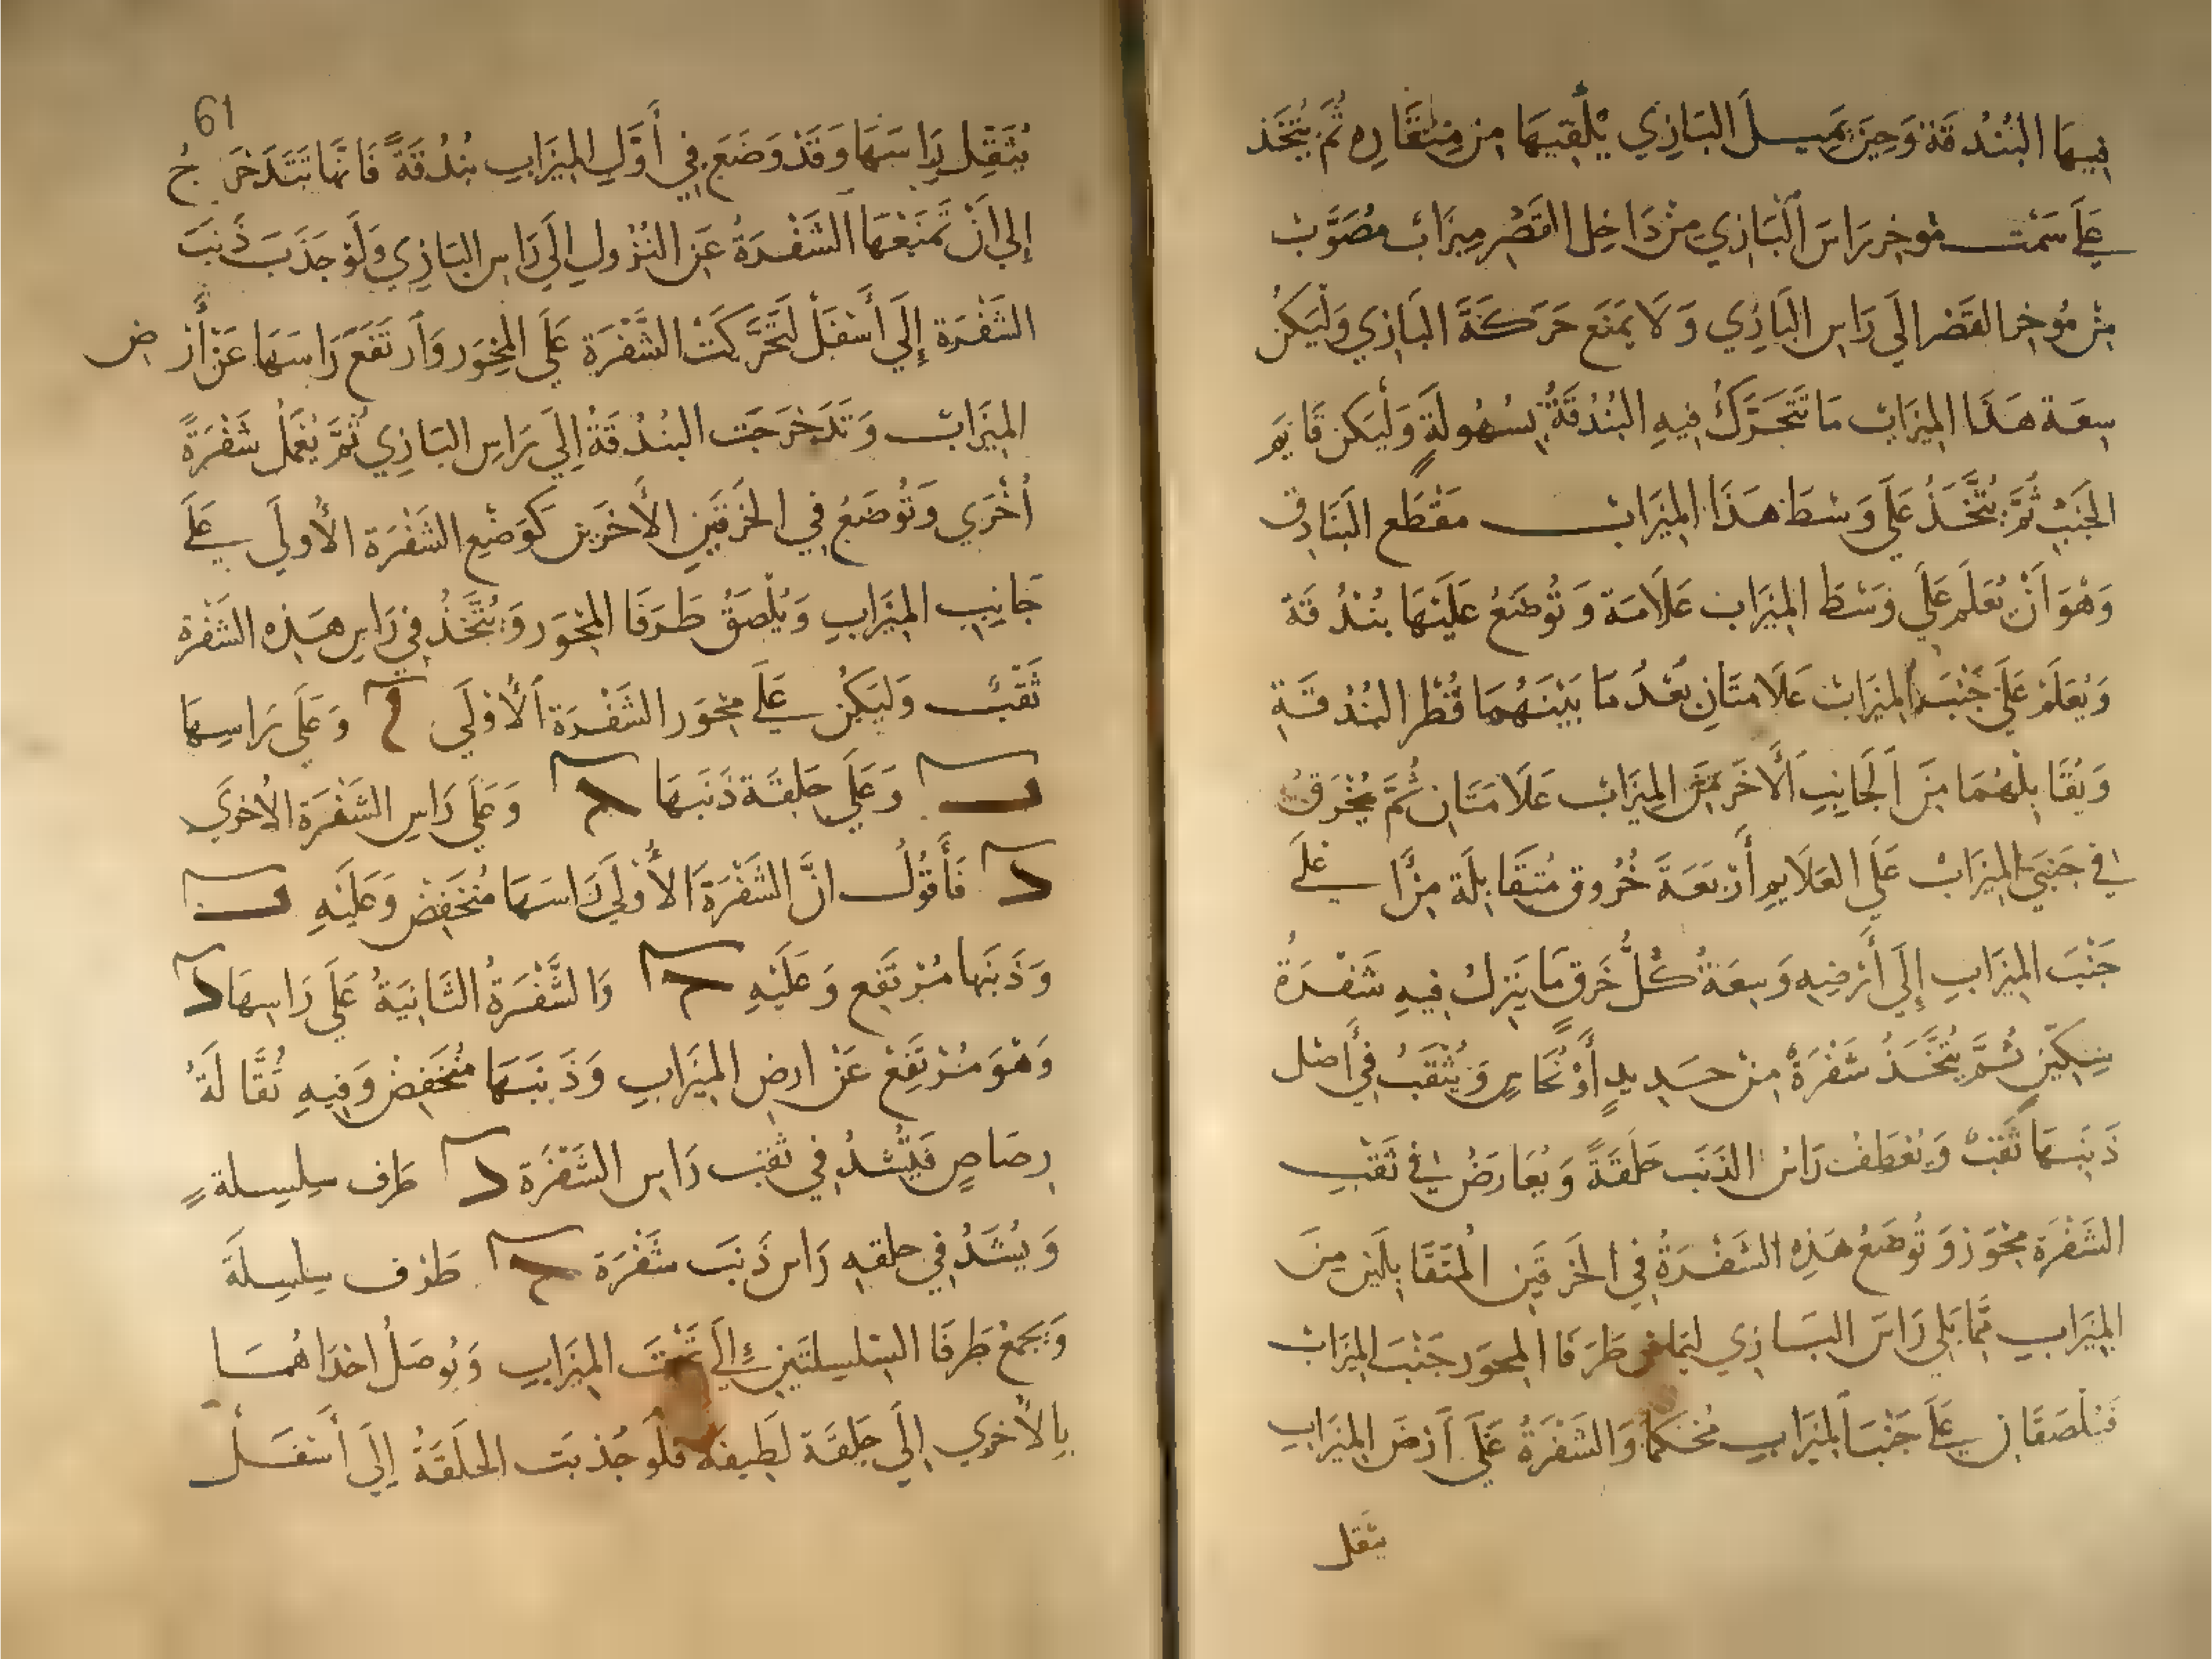 فِيهَا البُنْدُقَة وَحِيزَ يَمِيــلَ البَازِي يُلْقِيهَا مِنْ مِنْقَارِهِ ثُمَّ يُتَّخَذ
عَلَى سَمْت مُوخر رَاسَ الْبَازِي مِنْ دَاخِل القَصْر مِيزَابْ مُصَوَّبْ
مِنْ مُوخر القَصْر الَى رَاسِ البَازِي وَلَا يَمْنَع حَرَكَةَ البَازِي وَلْيَكُنْ
سِعَة هَذَا المِيزَابْ مَا تَتَحَرَّكُ فِيهِ البُنْدُقَةُ بِسُهُولَةٍ وَلْيَكن قَايم
الجَنْبْ ثُمَّ يُتَّخَذُ عَلَى وَسْطَ هَذَا المِيزَابْ مَقْطَع البَنَادِق
وَهْوَ أَنْ يُعَلَّم عَلَى وَسْطَ المِيزَاب عَلَامَة وَتُوضَعُ عَلَيْهَا بُنْدُقَة
وَيُعَلَّمْ عَلَى جَنْبَ المِيزَابْ عَلَامَتَانِ بُعْدُ مَا بَيْنَهُمَا قُطْر البُنْدُقَةِ
وَيُقَابِلُهُمَا مِنَ الجَانِبِ الْأخَر مِنَ المِيزَاب عَلَامَتَان ثُمَّ يُخْرَق
في جَنبَيْ المِيزَابْ عَلَى العَلَايِم أَرْبَعَةَ خُرُوق مُتَقَابِلَة مِنْ أعْلَى
جَنْبَ المِيزَابِ إِلَى أَرْضِيهِ وَسِعَةُ كُلُّ خَرقٍ مَا يَنزِلُ فِيهِ شَفْرَةُ
سِكِّينٍ ثُمَّ يُتَّخَذُ شَفْرَةٌ مِنْ حَدِيدٍ أَوْ نُحَاسٍ وَيُثْقَبُ فِي أَصْل
ذَنَبَهَا ثَقْبْ وَيُعْطَفُ رَاسُ الذَنَبَ حَلَقَةً وَيُعَارَضُ فِي ثَقْبِ
الشَفْرَة مِحْوَر وَتُوضَعُ هَذِهِ الشَفْرَةُ فِي الخَرقَيْنِ المُتَقَابِلَيْنِ مِنَ
المِيزَابِ مَمَّا يَلِي رَاسَ البَازِي لِيَمَاسَ طَرَفَا المِحوَر جَنْبَ المِيزَابْ
فَيُلْصَقَانِ عَلَى جَنْبَ المِيزَابِ مُحْكَمًا وَالشَفْرَةُ عَلَى أَرْضَ المِيزَابِ
يثقل
61
يُثَقِل رَاسَهَا وَقَدْ وَضَعَ فِي أَوَّلِ المِيزَابِ بُنْدُقَةً فَانَّهَا تَتَدَحْرَجُ
إلَى أَنْ تَمْنَعْهَا الشَفْرَةُ عَنِ النُزُولِ إِلَى رَاسِ البَازِي وَلَوْ جَذَبَ ذَنَبَ
الشَفْرَة إِلَى أَسْفَلْ لَتَحَرَّكَتْ الشَّفْرَة عَلَى المِحْوَر وَارْتَفَعَ رَاسَهَا عَنْ أَرْض
المِيزَابْ وَتَدَحْرَجَت البُنْدُقَةُ إلَى رَاسِ البَازِي ثُمَّ يُعْمَلُ شَفْرَةً
أُخْرَي وَتُوضَعُ فِي الخَرقَيْنِ الأَخَرَين كَوَضْعِ الشَفْرَة الأُولَى عَلَى
جَانِبِ المِيزَابِ وَيُلْصَقُ طَرَفَا المِحْوَر وَيُتَّخَذُ فِي رَاسِ هَذِهِ الشَفْرَة
ثَقْبْ وَلَيَكُن عَلَى مِحْوَر الشَفْرَة الأُوْلَي م وَعَلَى رَاسِهَا
ب وَعَلَى حَلقَة ذَنَبَهَا ح وَعَلَى رَاسِ الشَفْرَة الأُخْرَي
د فَأَقُوْلُ انَّ الشَفْرَةَ الأُوْلَى رَاسَهَا مُنْخَفِضْ وَعَلَيْهِ ب
وَذَنَبَهَا مُرْتَفِع وَعَلَيْهِ ح وَالشَّفْرَةُ الثَانِيَةُ عَلَى رَاسِهَا د
وَهْوَ مُرْتَفِعْ عَنْ ارضِ المِيزَابِ وَذَنَبَهَا مُنْخَفِضْ وَفِيهِ ثُقَّالَةُ
رِصَاصٍ فَيُشَدُ فِي ثَقب رَاسِ الشَفْرَة د طَرف سِلسِلةٍ
وَيُشَدُ فِي حلقهِ رَاس ذَنَب شَفْرَة ح طَرْف سِلسِلَة
وَيَجمَعُ طَرفَا السِلسِلتَيْنِ إلَى تَحْتَ المِيزَابِ وَيُوصَلُ احدَاهُمَا
بِالأُخرَي إلَى حَلقَة لَطِيفه فَلَو جُذبَت الحَلَقَةُ إلَى أَسْفَلْ